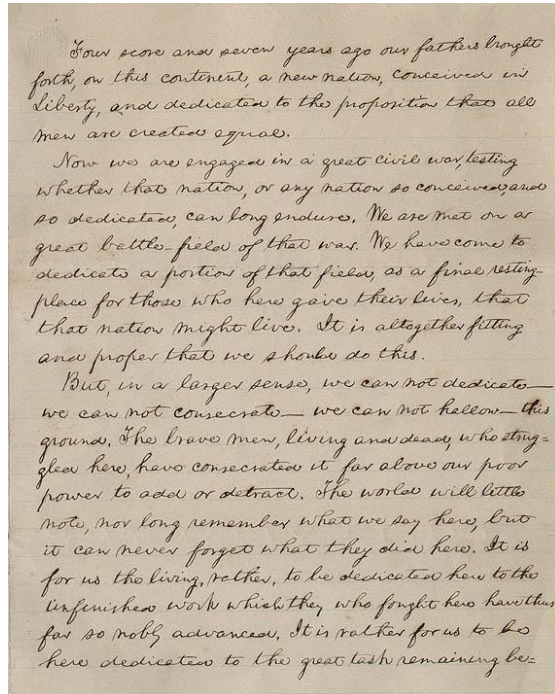 Four score and seven years ago our fathers brought
forth, on this continent, a new nation, conceived in
Liberty, and dedicated to the proposition that all
men are created equal.
Now we are engaged in a great civil war, testing
whether that nation, or any nation so conceived, and
so dedicated, can long endure. We are met on a
great battle-field of that war. We have come to
dedicate a portion of that field, as a final resting-
place for those who here gave their lives, that
that nation might live. It is altogether fitting
and proper that we should do this.
But, in a larger sense, we can not dedicate—
we can not consecrate— we can not hallow— this
ground. The brave men, living and dead, who strug=
gled here, have consecrated it far above our poor
power to add or detract. The world will little
note, nor long remember what we say here, but
it can never forget what they did here. It is
for us the living, rather, to be dedicated here to the
unfinished work which they who fought here have thus
far so nobly advanced. It is rather for us to be
here dedicated to the great task remaining be=